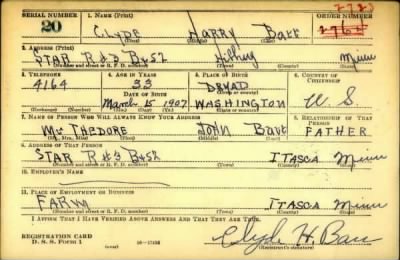 SERIAL NUMBER 1. NAME (Print) ORDER NUMBER
2723
20 CLYDE HARRY Barr 2762
(First) (Middle) (Last)
2. ADDRESS (Print)
STAR R#3 Bx52 Hibbing Minn
(Number and street or R. F. D. number) (Town) (County) (State)
3. TELEPHONE 4. AGE IN YEARS 5. PLACE OF BIRTH 6. COUNTRY OF CITIZENSHIP
4164 33 DRYAD
DATE OF BIRTH (Town or county)
March 15 1907 WASHINGTON U. S.
(Exchange) (Number) (Mo.) (Day) (Yr.) (State or country)
7. NAME OF PERSON WHO WILL ALWAYS KNOW YOUR ADDRESS 8. RELATIONSHIP OF THAT PERSON
Mr THEDORE JOHN Barr FATHER
(Mr., Mrs., Miss) (First) (Middle) (Last)
9. ADDRESS OF THAT PERSON
STAR R#3 Bx52 ITASCA Minn
(Number and street or R. F. D. number) (Town) (County) (State)
10. EMPLOYER'S NAME
11. PLACE OF EMPLOYMENT OR BUSINESS
FARM ITASCA Minn
(Number and street or R. F. D. number) (Town) (County) (State)
I AFFIRM THAT I HAVE VERIFIED ABOVE ANSWERS AND THAT THEY ARE TRUE.
REGISTRATION CARD
D. S. S. Form 1 16-17105 Clyde H. Barr
(Registrant's signature)